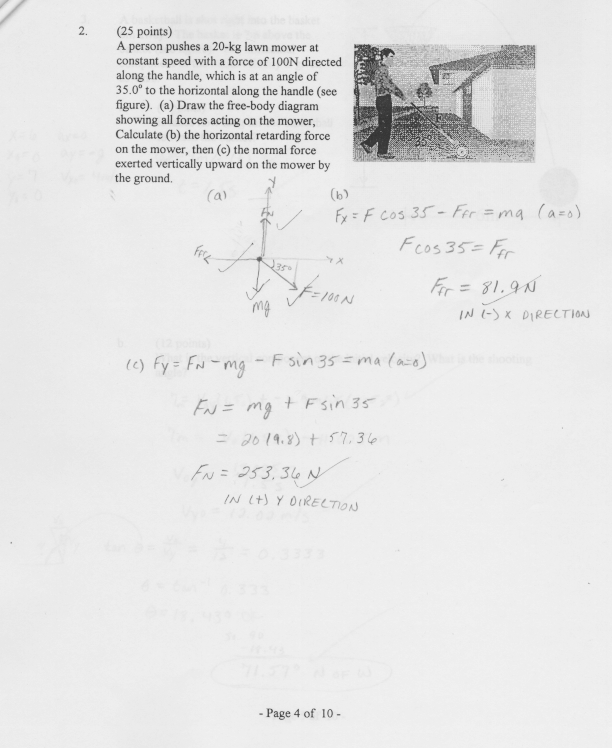 2.
(25 points)
A person pushes a 20-kg lawn mower at
constant speed with a force of 100N directed
along the handle, which is at an angle of
35.0° to the horizontal along the handle (see
figure). (a) Draw the free-body diagram
showing all forces acting on the mower,
Calculate (b) the horizontal retarding force
on the mower, then (c) the normal force
exerted vertically upward on the mower by
the ground.
(a)
y
FN
Ffr
x
35°
mg
F=100N
(b)
Fx = F cos 35 - Ffr = ma (a=0)
F cos 35 = Ffr
Ffr = 81.9N
IN (-) X DIRECTION
(c) Fy = FN - mg - F sin 35 = ma (a=0)
FN = mg + F sin 35
= 20(9.8) + 57.36
FN = 253.36 N
IN (+) Y DIRECTION
- Page 4 of 10 -